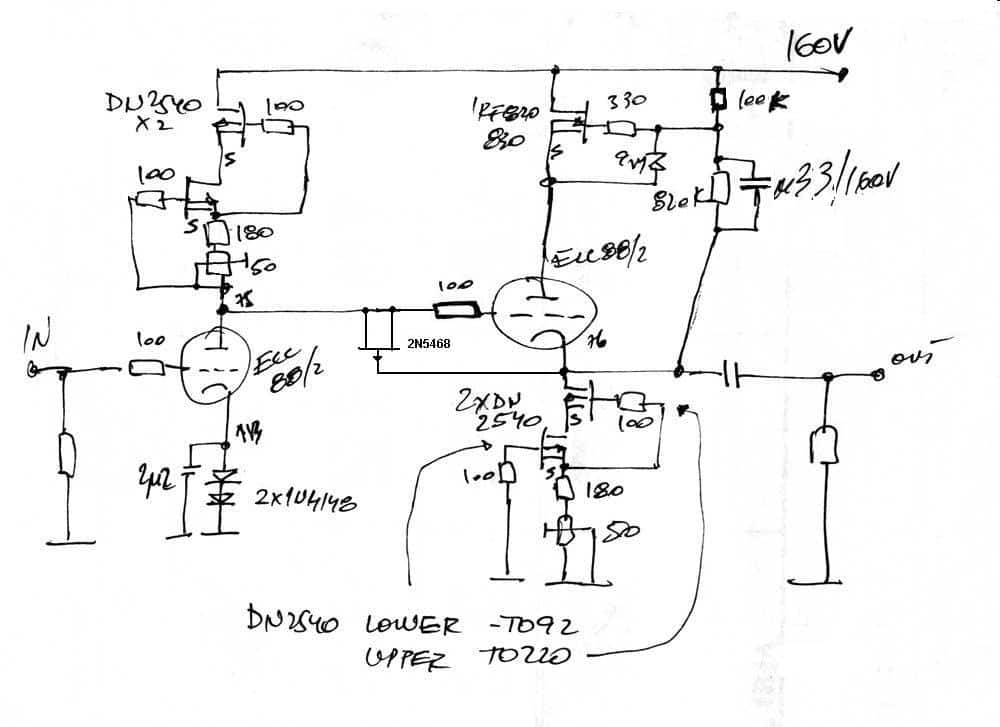 160V
DN2540
X2
100
IRF820
830
330
100K
S
S
9V1
100
820K
.33/160V
S
180
50
ECC88/2
75
100
IN
100
2N5468
76
OUT
ECC
88/2
2XDN
2540
S
100
1V3
100
S
2µ2
180
2X1N4148
500
DN2540 LOWER -TO92
UPPER TO220